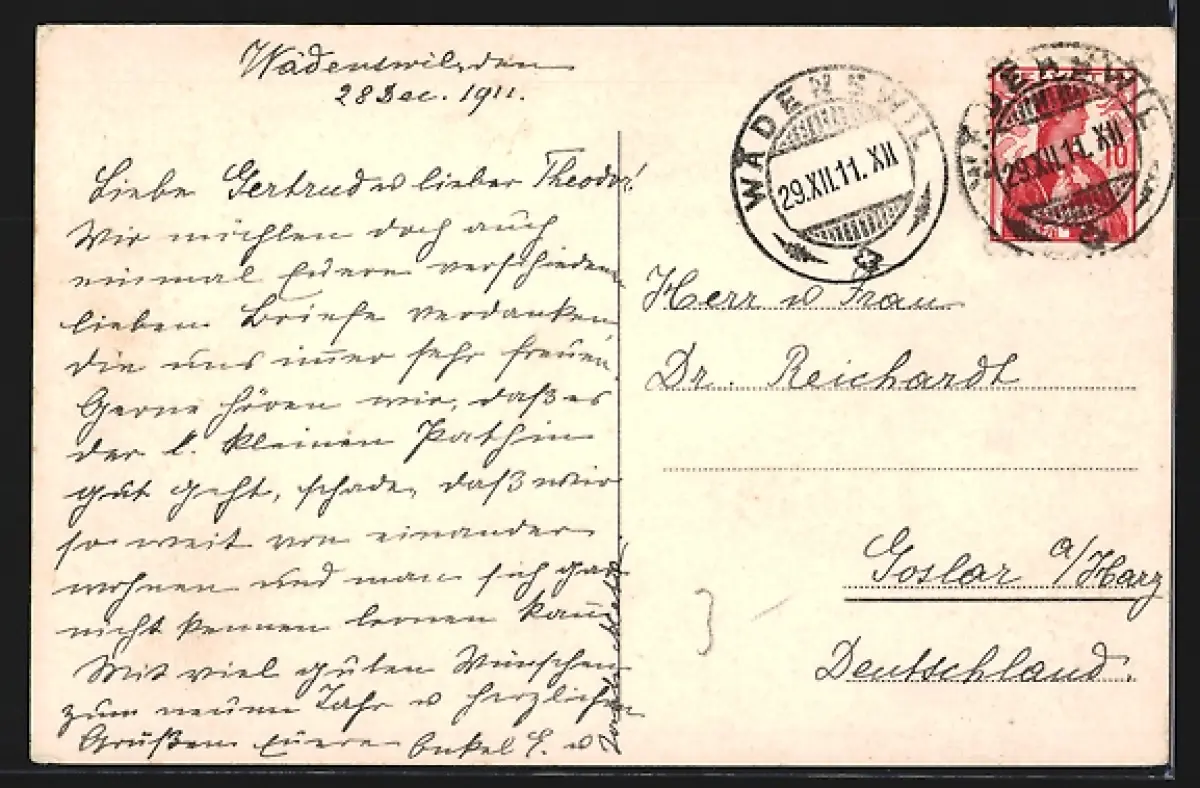 Wädenswil, den
28 Dec. 1911.
Liebe Gertrud u lieber Theodor!
Wir möchten doch auch
einmal Euere verschiedenen
lieben Briefe verdanken
die uns im̄er sehr freuen.
Gerne hören wir, daß es
der l. kleinen Pathin
gut geht, schade, daß wir
so weit von einander
wohnen und man sich gar
nicht kennen lernen kan̄.
Mit viel guten Wünschen
zum neuen Jahr u herzlichen
Grüßen Euere Onkel E. u
WÄDENSWIL
29.XII.11. XII
WÄDENSWIL
29.XII.11. XII
10
Herr u Frau
Dr. Reichardt
Goslar a/Harz
Deutschland.
3